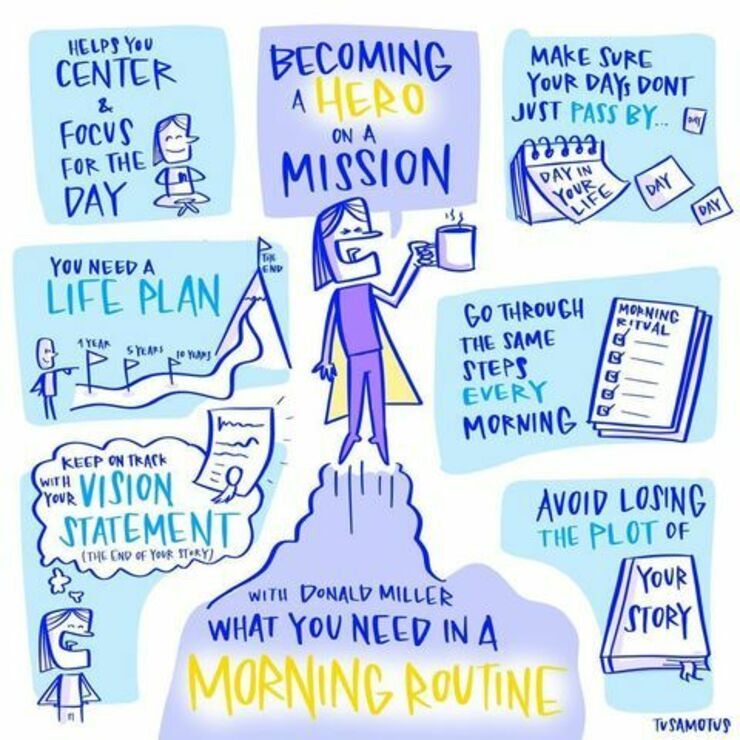 HELPS YOU
CENTER
&
FOCUS
FOR THE
DAY
BECOMING
A HERO
ON A
MISSION
MAKE SURE
YOUR DAYS DONT
JUST PASS BY...
DAY IN
YOUR
LIFE
DAY
DAY
DAY
YOU NEED A
LIFE PLAN
1 YEAR
5 YEARS
10 YEARS
THE
END
GO THROUGH
THE SAME
STEPS
EVERY
MORNING
MORNING
RITUAL
KEEP ON TRACK
WITH
YOUR VISION
STATEMENT
(THE END OF YOUR STORY)
AVOID LOSING
THE PLOT OF
YOUR
STORY
WITH DONALD MILLER
WHAT YOU NEED IN A
MORNING ROUTINE
TVSAMOTUS